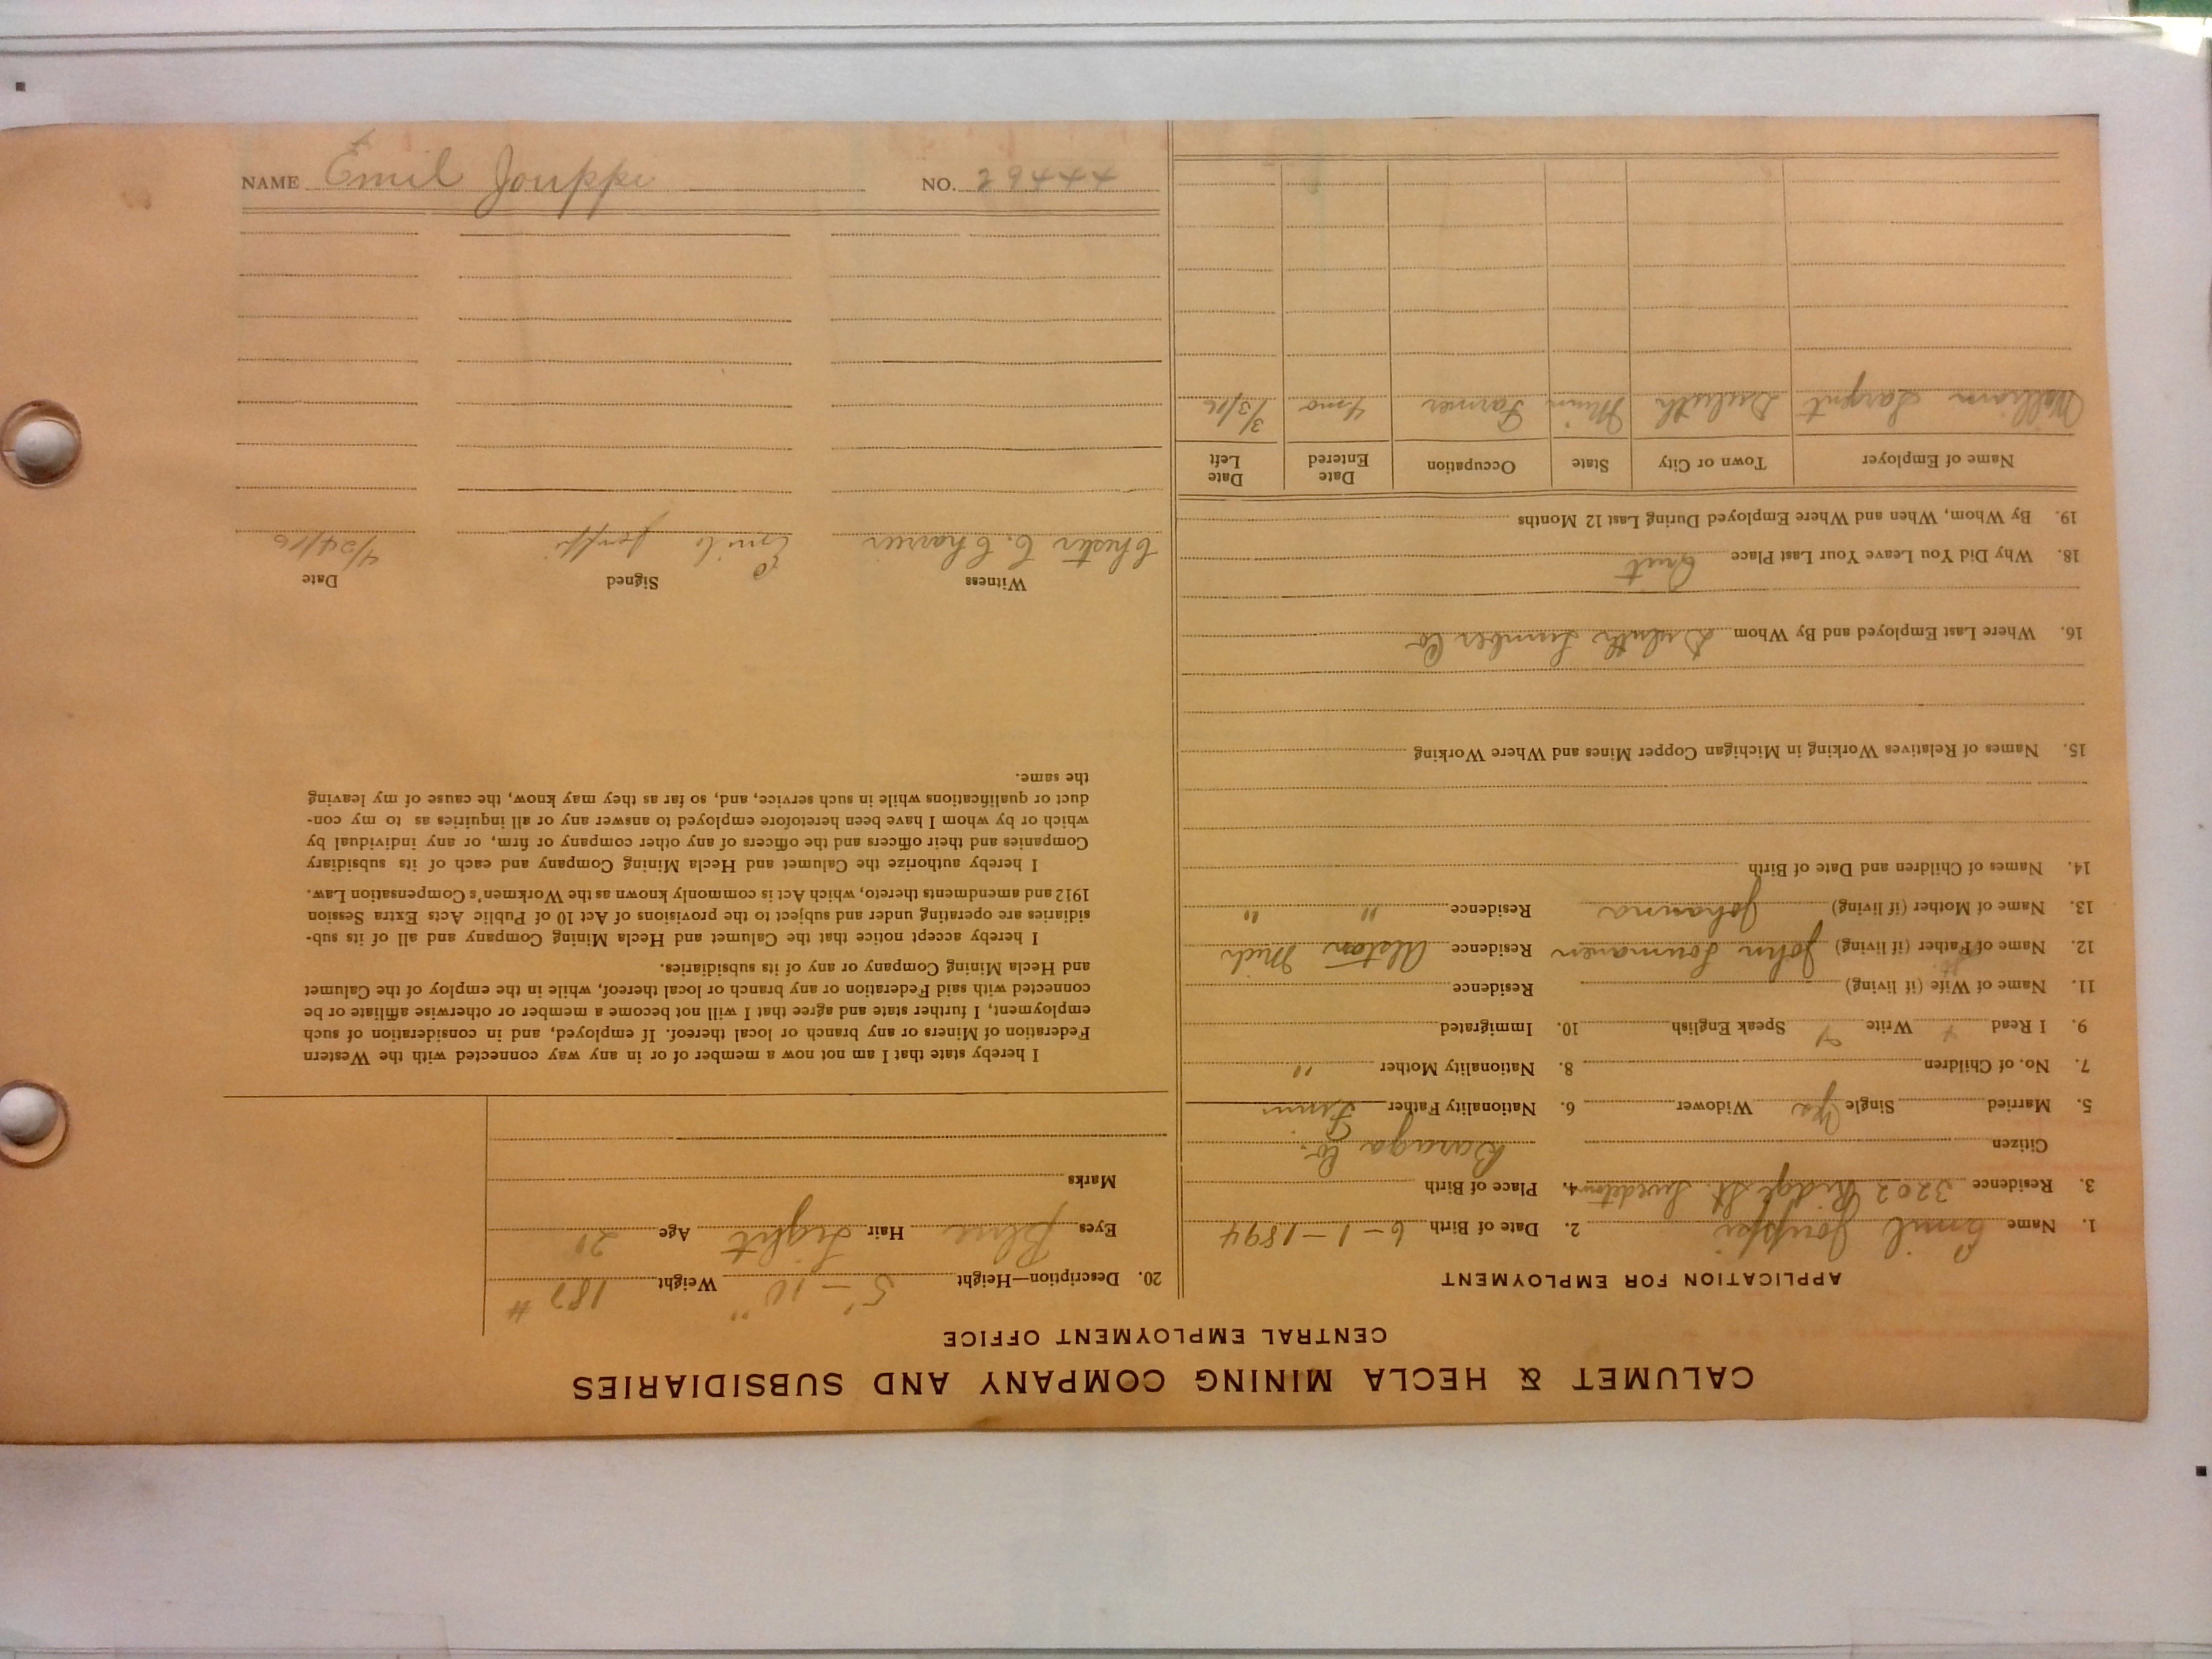 NAME Emil Jouppi NO. 29444
CALUMET & HECLA MINING COMPANY AND SUBSIDIARIES
CENTRAL EMPLOYMENT OFFICE
APPLICATION FOR EMPLOYMENT
1. Name Emil Jouppi 2. Date of Birth 6-1-1894
3. Residence 3202 Ridge St. Swedetown 4. Place of Birth
Citizen Baraga Co.
5. Married Single Yes Widower 6. Nationality Father Finn
7. No. of Children 8. Nationality Mother "
9. I Read Write Speak English 10. Immigrated
11. Name of Wife (if living) Residence
12. Name of Father (if living) John Residence Alston Mich
13. Name of Mother (if living) Johanna Residence " "
14. Names of Children and Date of Birth
15. Names of Relatives Working in Michigan Copper Mines and Where Working
16. Where Last Employed and By Whom Duluth Lumber Co
18. Why Did You Leave Your Last Place Quit
19. By Whom, When and Where Employed During Last 12 Months
Name of Employer Town or City State Occupation Date Entered Date Left
William Sargent Duluth Minn Farmer 4 mo 3/3/16
20. Description—Height 5'-10" Weight 187 #
Eyes Blue Hair Light Age 21
Marks
I hereby state that I am not now a member of or in any way connected with the Western
Federation of Miners or any branch or local thereof. If employed, and in consideration of such
employment, I further state and agree that I will not become a member or otherwise affiliate or be
connected with said Federation or any branch or local thereof, while in the employ of the Calumet
and Hecla Mining Company or any of its subsidiaries.
I hereby accept notice that the Calumet and Hecla Mining Company and all of its sub-
sidiaries are operating under and subject to the provisions of Act 10 of Public Acts Extra Session
1912 and amendments thereto, which Act is commonly known as the Workmen's Compensation Law.
I hereby authorize the Calumet and Hecla Mining Company and each of its subsidiary
Companies and their officers and the officers of any other company or firm, or any individual by
which or by whom I have been heretofore employed to answer any or all inquiries as to my con-
duct or qualifications while in such service, and, so far as they may know, the cause of my leaving
the same.
Witness Signed Date
Chester C. Charrier Emil Jouppi 4/24/16